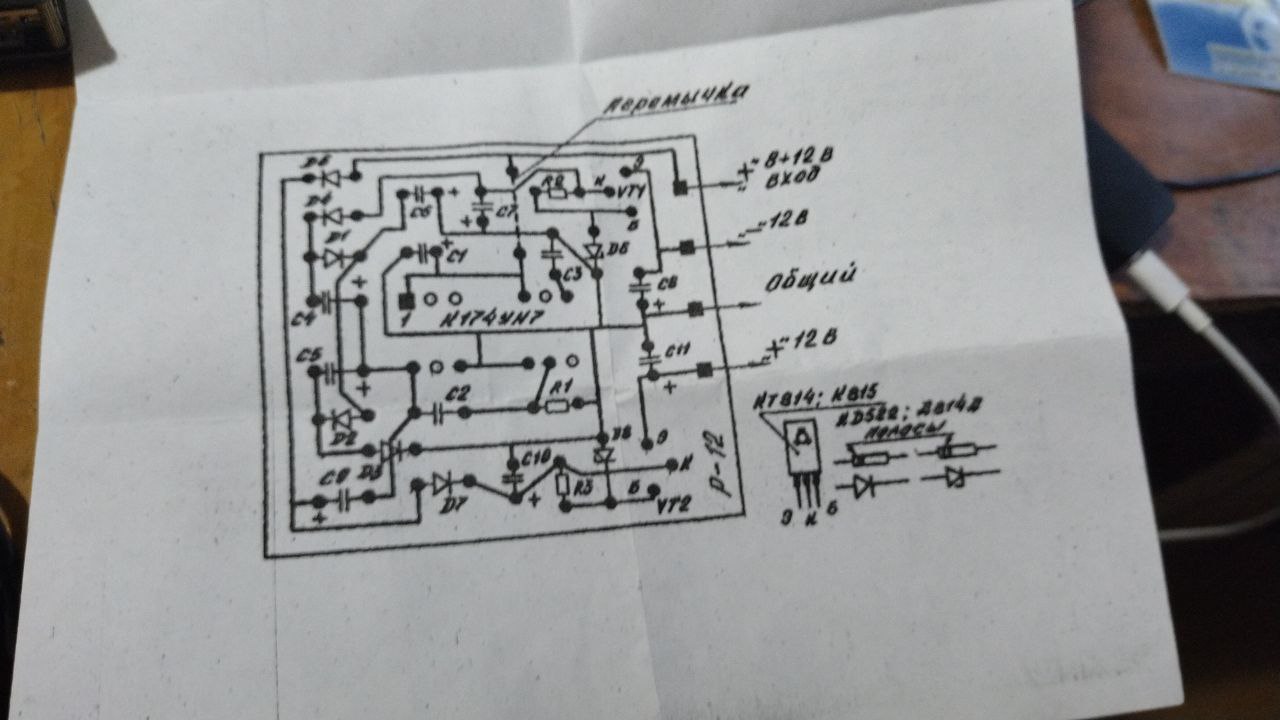 перемычка
D6
"+" 8÷12 В
ВХОД
Э
R2
К
VT1
D4
C6
+
C7
+
Б
"-" 12В
D1
+
C1
C3
C8
+
Общий
C4
+
1
К174УН7
C5
+
C11
+
"+" 12 В
C2
R1
D2
КТ814; К815
КД522; Д814Д
полосы
Э
D3
C10
+
К
Р-12
C9
+
D7
R3
Б
VT2
Э К Б